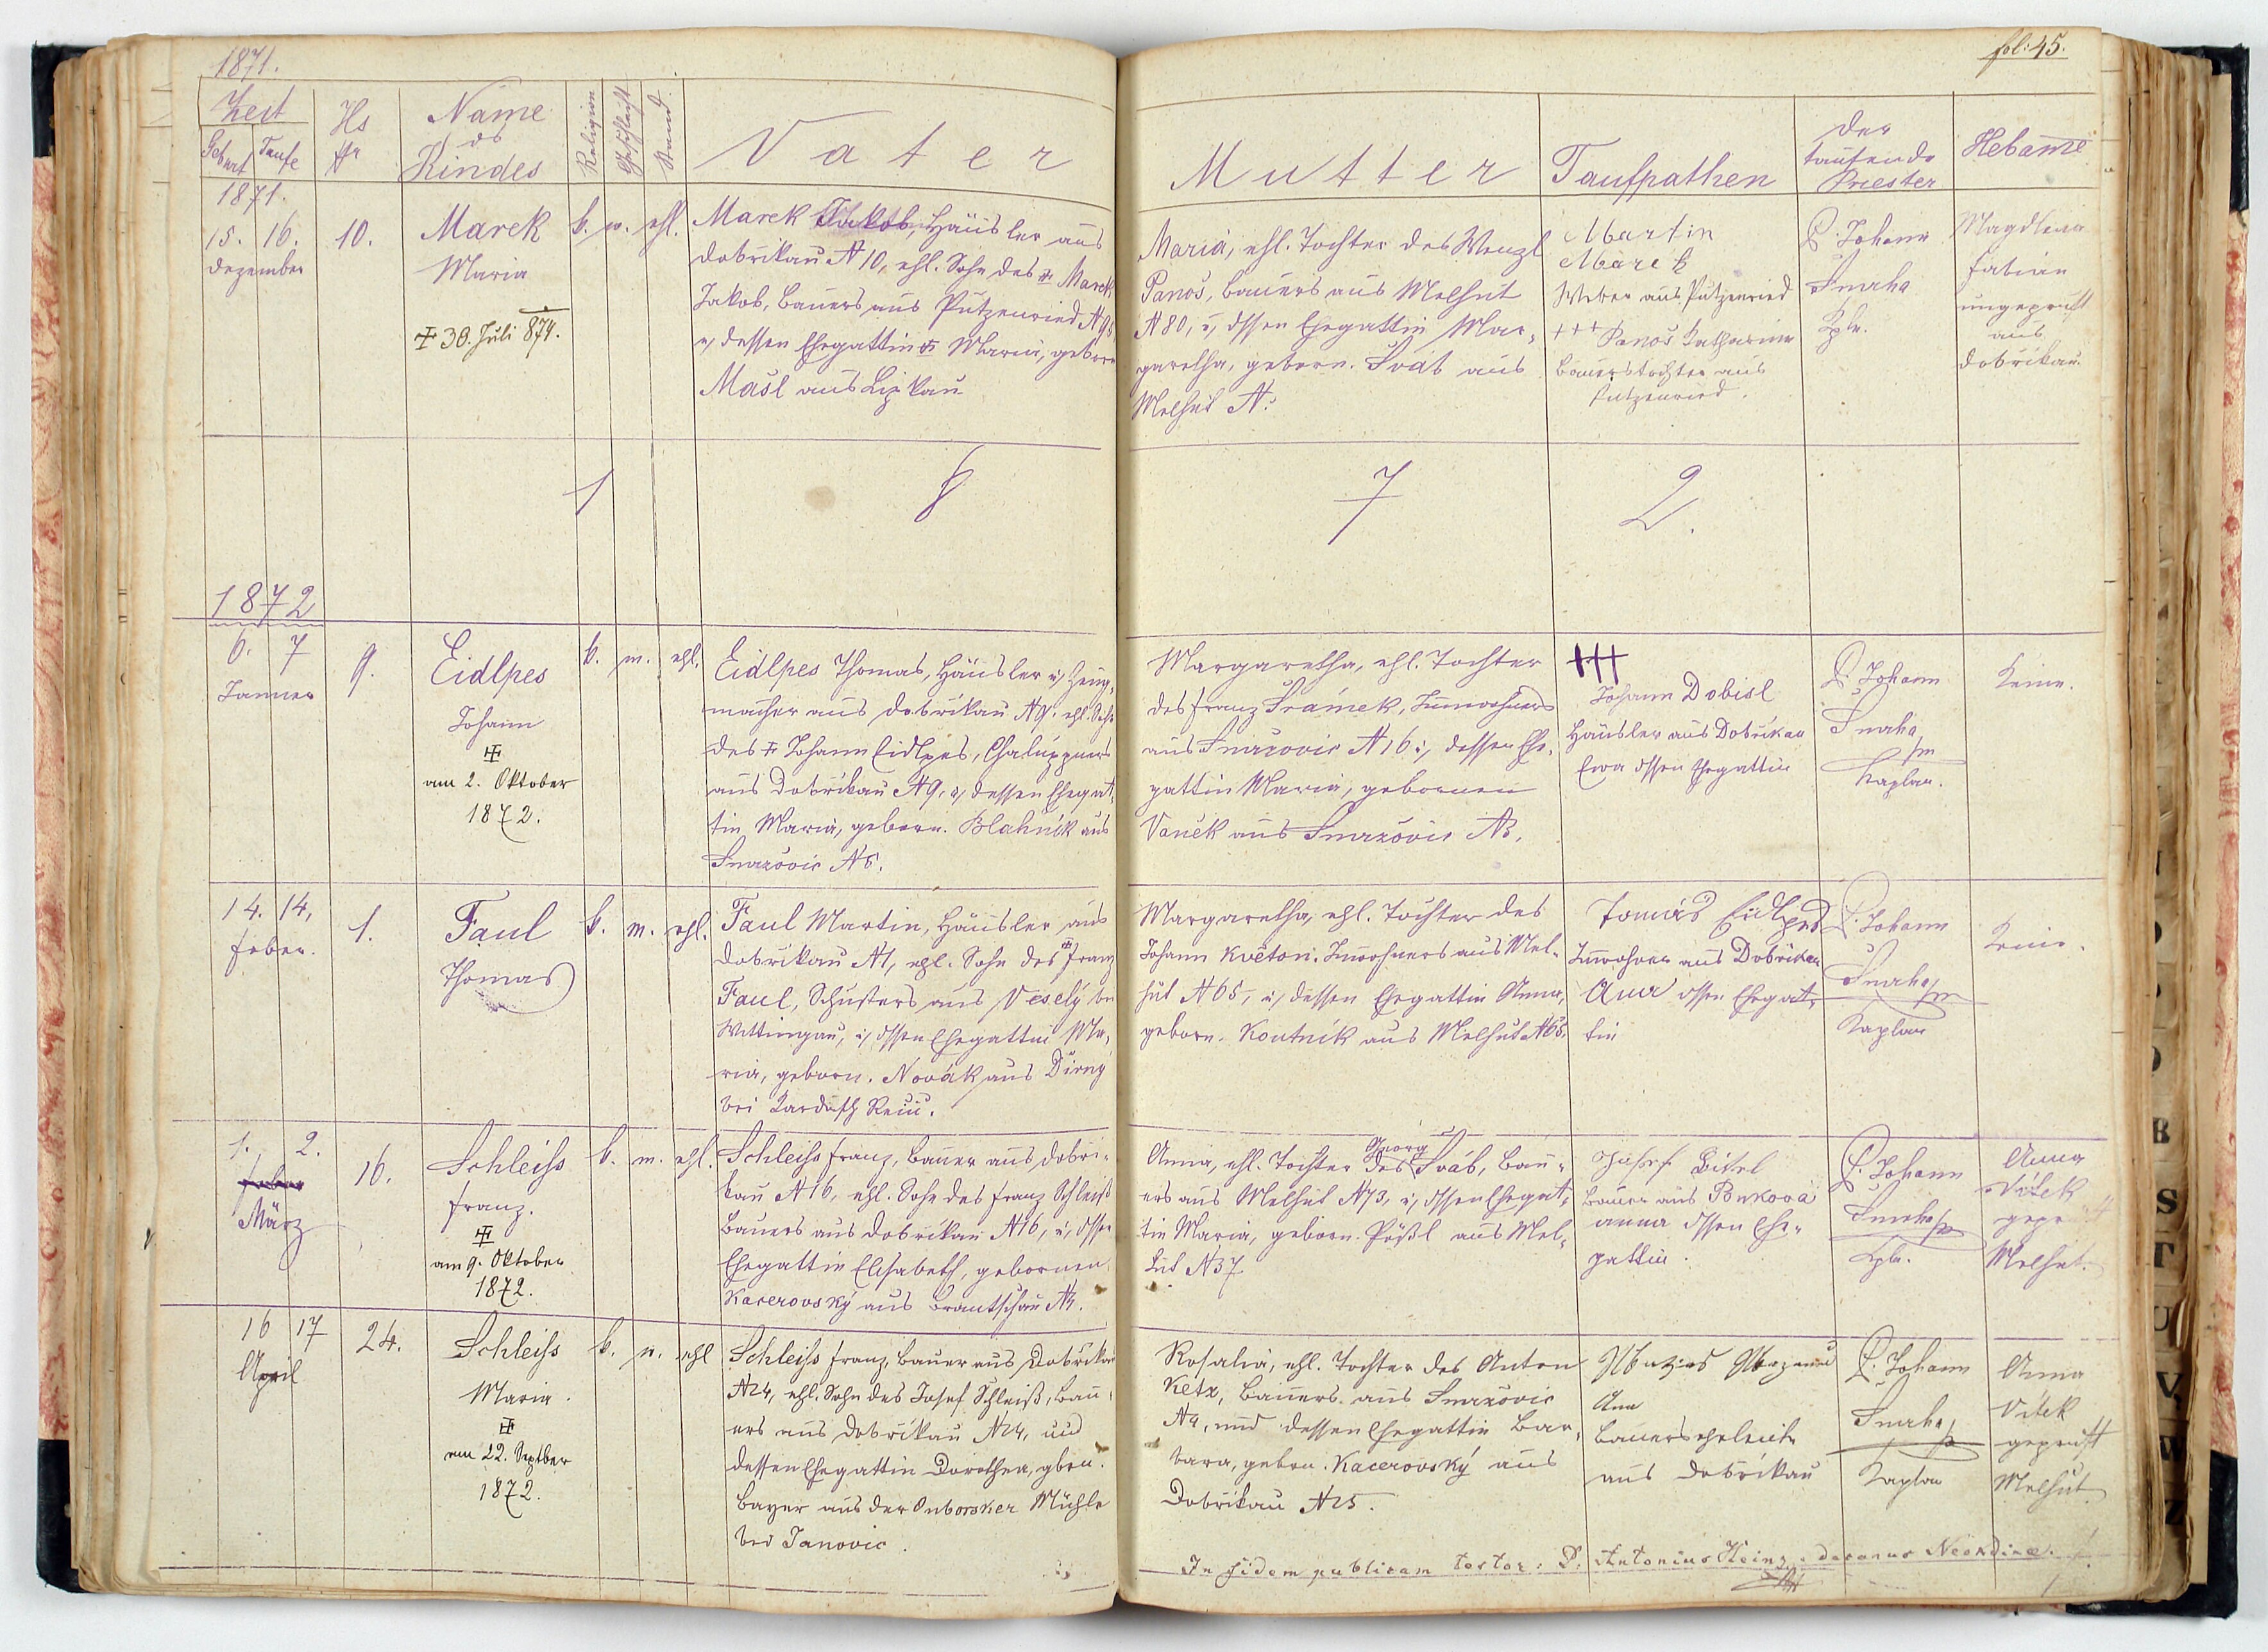 1871.
fol: 45.
Zeit
Geburt Taufe
Hs
Nr
Name
ds
Kindes
Religion
Geschlecht
Stand.
Vater
Mutter
Taufpathen
der
taufende
Priester
Hebame
1871.
15. 16.
Dezember
10.
Marek
Maria
30. Juli 874.
k. w. ehl.
Marek Jakob, Häusler aus
Dobřikau N 10, ehl. Sohn des Marek
Jakob, Bauers aus Putzenried
u, dessen Ehegattin Maria, geborn
Mašl aus Lipkau
Maria, ehl. Tochter des Wenzl
Panoš, Bauers aus Melhut
N 80, u, dssen Ehegattin Mar-
garetha, geborn. Šváb aus
Melhut N.
Martin
Marek
Weber aus Putzenried
+++ Panoš Katharina
Bauerstochter aus
Putzenried.
P. Johann
Smrha
Kpln.
Magdlena
Fabian
ungeprüft
aus
Dobřikau.
1
8
7
2.
1872
6. 7
Janner
9.
Eidlpes
Johann
am 2. Oktober
1872.
k. m. ehl.
Eidlpes Thomas, Häusler u, Zeug-
macher aus Dobřikau N 9. ehl. Sohn
des Johann Eidlpes, Chaluppners
aus Dobřikau N 9, u, dessen Ehegat-
tin Maria, geborn. Blahnik aus
Smržovic N 6.
Margaretha, ehl. Tochter
des Franz Šrámek, Inwohners
aus Smržovic N 16 u, dessen Ehe-
gattin Maria, gebornen
Vaněk aus Smržovic N.
+++
Johann Dobisl
Häusler aus Dobřikau
Ewa dssen Ehegattin
P. Johann
Smrha
Kaplan.
Keine.
14. 14.
Feber.
1.
Faul
Thomas
k. m. ehl.
Faul Martin, Häusler aus
Dobřikau N 1, ehl. Sohn des Franz
Faul, Schusters aus Veselý bei
Wittingau, u, dssen Ehegattin Ma-
ria, geborn. Novák aus Dirný
bei Kardasch Rečic.
Margaretha, ehl. Tochter des
Johann Květon. Inwohners aus Mel-
hut N 65, u, dessen Ehegattin Anna,
geborn. Koutnik aus Melhut N 65.
Tomás Eidlpes
Inwohner aus Dobřikau
Ana dssen Ehegat-
tin
P. Johann
Smrha
Kaplan
Keine.
1. 2.
März
16.
Schleiss
Franz.
am 9. Oktober
1872.
k. m. ehl.
Schleiss Franz, Bauer aus Dobři-
kau N 16, ehl. Sohn des Franz Schleiß
Bauers aus Dobřikau N 16, u, dssen
Ehegattin Elisabeth, gebornen
Kacerovský aus Brantschau N.
Georg
Anna, ehl. Tochter des Šváb, Bau-
ers aus Melhut N 73, u, dssen Ehegat-
tin Maria, geborn. Pößl aus Mel-
hut N 37
Josef
Bauer aus Ponkova
anna dssen Ehe-
gattin.
P. Johann
Smrha
Kpln.
Anna
Vítek
Melhut.
16 17
April
24.
Schleiss
Maria.
am 22. Septber
1872.
k. w. ehl
Schleiss Franz, Bauer aus Dobřikau
N 24, ehl. Sohn des Josef Schleiß, Bau-
ers aus Dobřikau N 24, und
dessen Ehegattin Dorothea, gbrn.
Bayer aus der Mühle
bei Janovic.
Rosalia, ehl. Tochter des Anton
Ketz, Bauers aus Smržovic
N 4, und dessen Ehegattin Bar-
bara, gebrn. Kacerovský aus
Dobřikau N 25.
Ana
Bauerseheleute
aus Dobřikau
P. Johann
Smrha
Kaplan
Anna
Vítek
geprüft
Melhut
In fidem publicam testor: P. Antonius Heinz, decanus